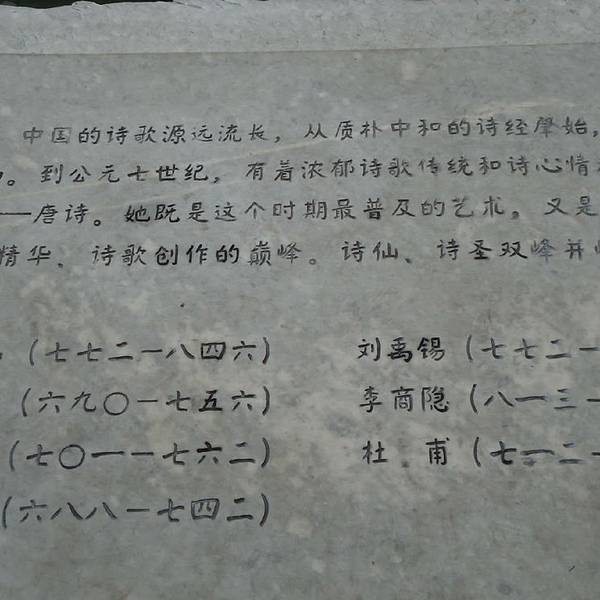 中国的诗歌源远流长，从质朴中和的诗经肇始，
。到公元七世纪，有着浓郁诗歌传统和诗心情
——唐诗。她既是这个时期最普及的艺术。又是
精华、诗歌创作的巅峰。诗仙、诗圣双峰并
（七七二一八四六） 刘禹锡（七七二一
（六九〇一七五六） 李商隐（八一三一
（七〇一一七六二） 杜甫（七一二一
（六八八一七四二）